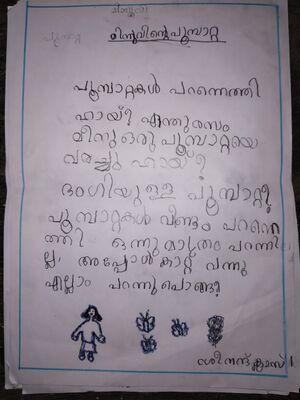 മിന്നുവിന്റെ പൂമ്പാറ്റ
പൂമ്പാറ്റകൾ പറന്നെത്തി
ഹായ്! എന്തുരസം
മീനു ഒരു പൂമ്പാറ്റയെ
വരച്ചു ഹായ് !
ഭംഗിയുള്ള പൂമ്പാറ്റ!
പൂമ്പാറ്റകൾ വീണ്ടും പറന്നെ
ത്തി ഒന്നു മാത്രം പറന്നി
ല്ല. അപ്പോൾ കാറ്റ് വന്നു
എല്ലാം പറന്നുപൊങ്ങി
ക്ലാസ് 1